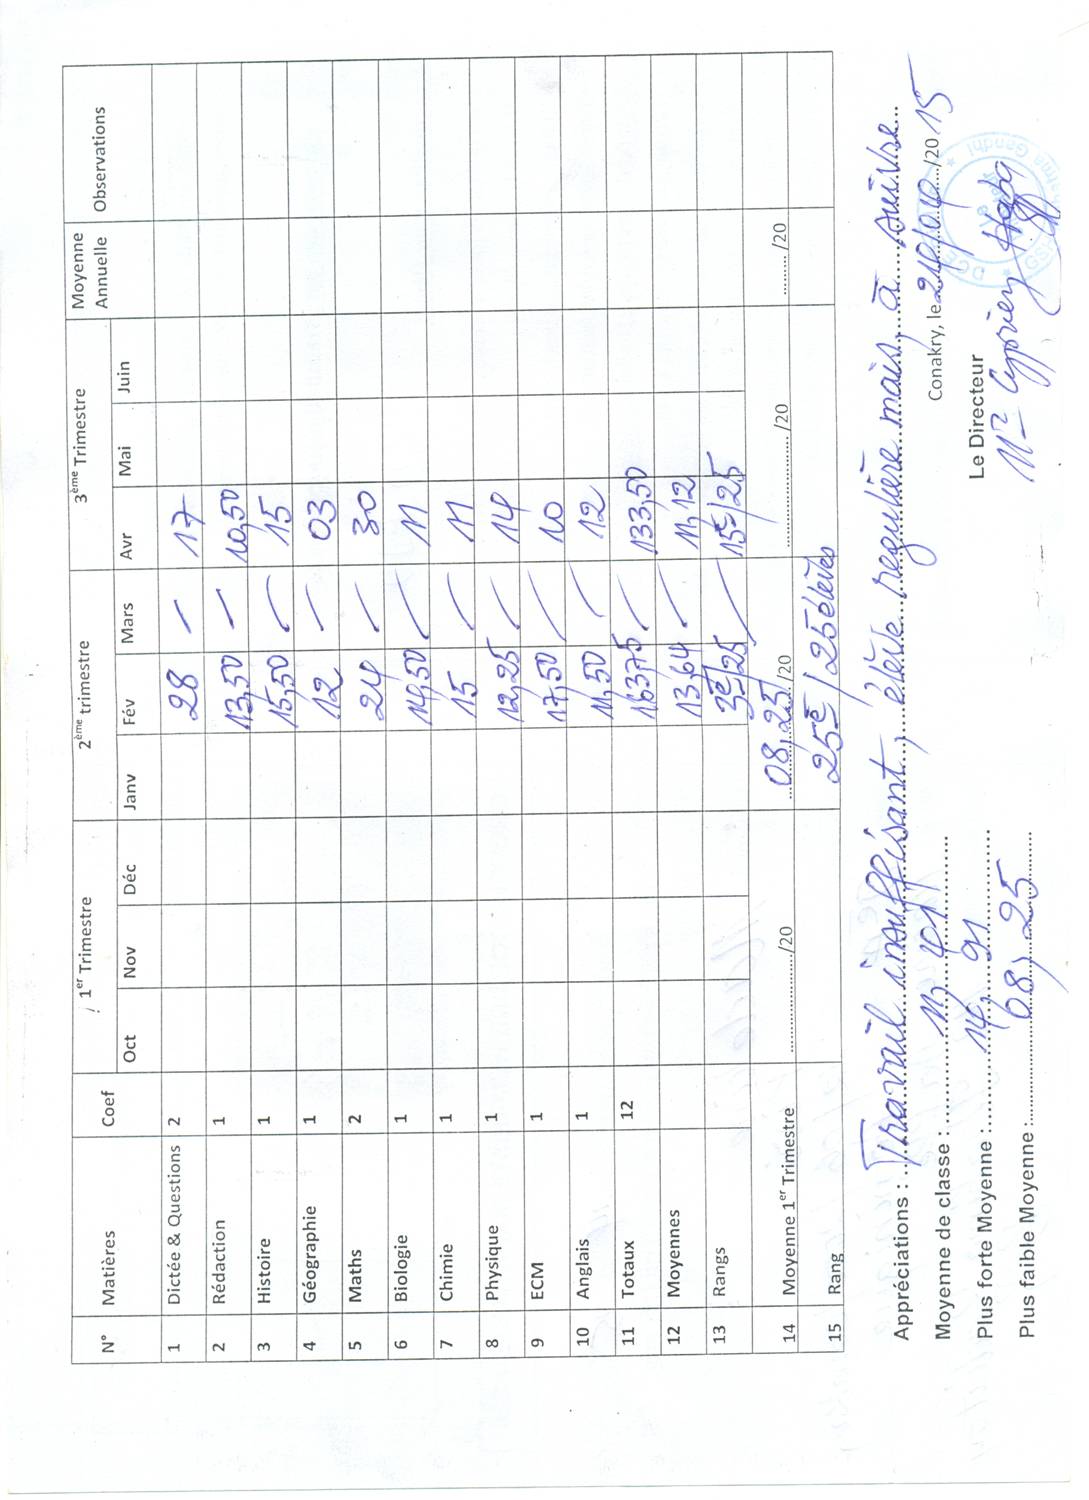 N° Matières Coef 1er Trimestre 2ème trimestre 3ème Trimestre Moyenne Annuelle Observations
Oct Nov Déc Janv Fév Mars Avr Mai Juin
1 Dictée & Questions 2 28 — 17
2 Rédaction 1 13,50 — 10,50
3 Histoire 1 15,50 — 15
4 Géographie 1 12 — 03
5 Maths 2 24 — 30
6 Biologie 1 14,50 — 11
7 Chimie 1 15 — 11
8 Physique 1 12,25 — 14
9 ECM 1 17,50 — 10
10 Anglais 1 11,50 — 12
11 Totaux 12 163,75 — 133,50
12 Moyennes 13,64 — 11,12
13 Rangs 3e/25 — 15e/25
14 Moyenne 1er Trimestre ............/20 08,25/20 ............/20 ......../20
15 Rang 25e/25 élèves
Appréciations : Travail insuffisant, élève regulière mais à suivre
Moyenne de classe : 11,401
Conakry, le /2015
Plus forte Moyenne : 14,91
Le Directeur
Plus faible Moyenne : 08,25
Mr Cyprien
DCE